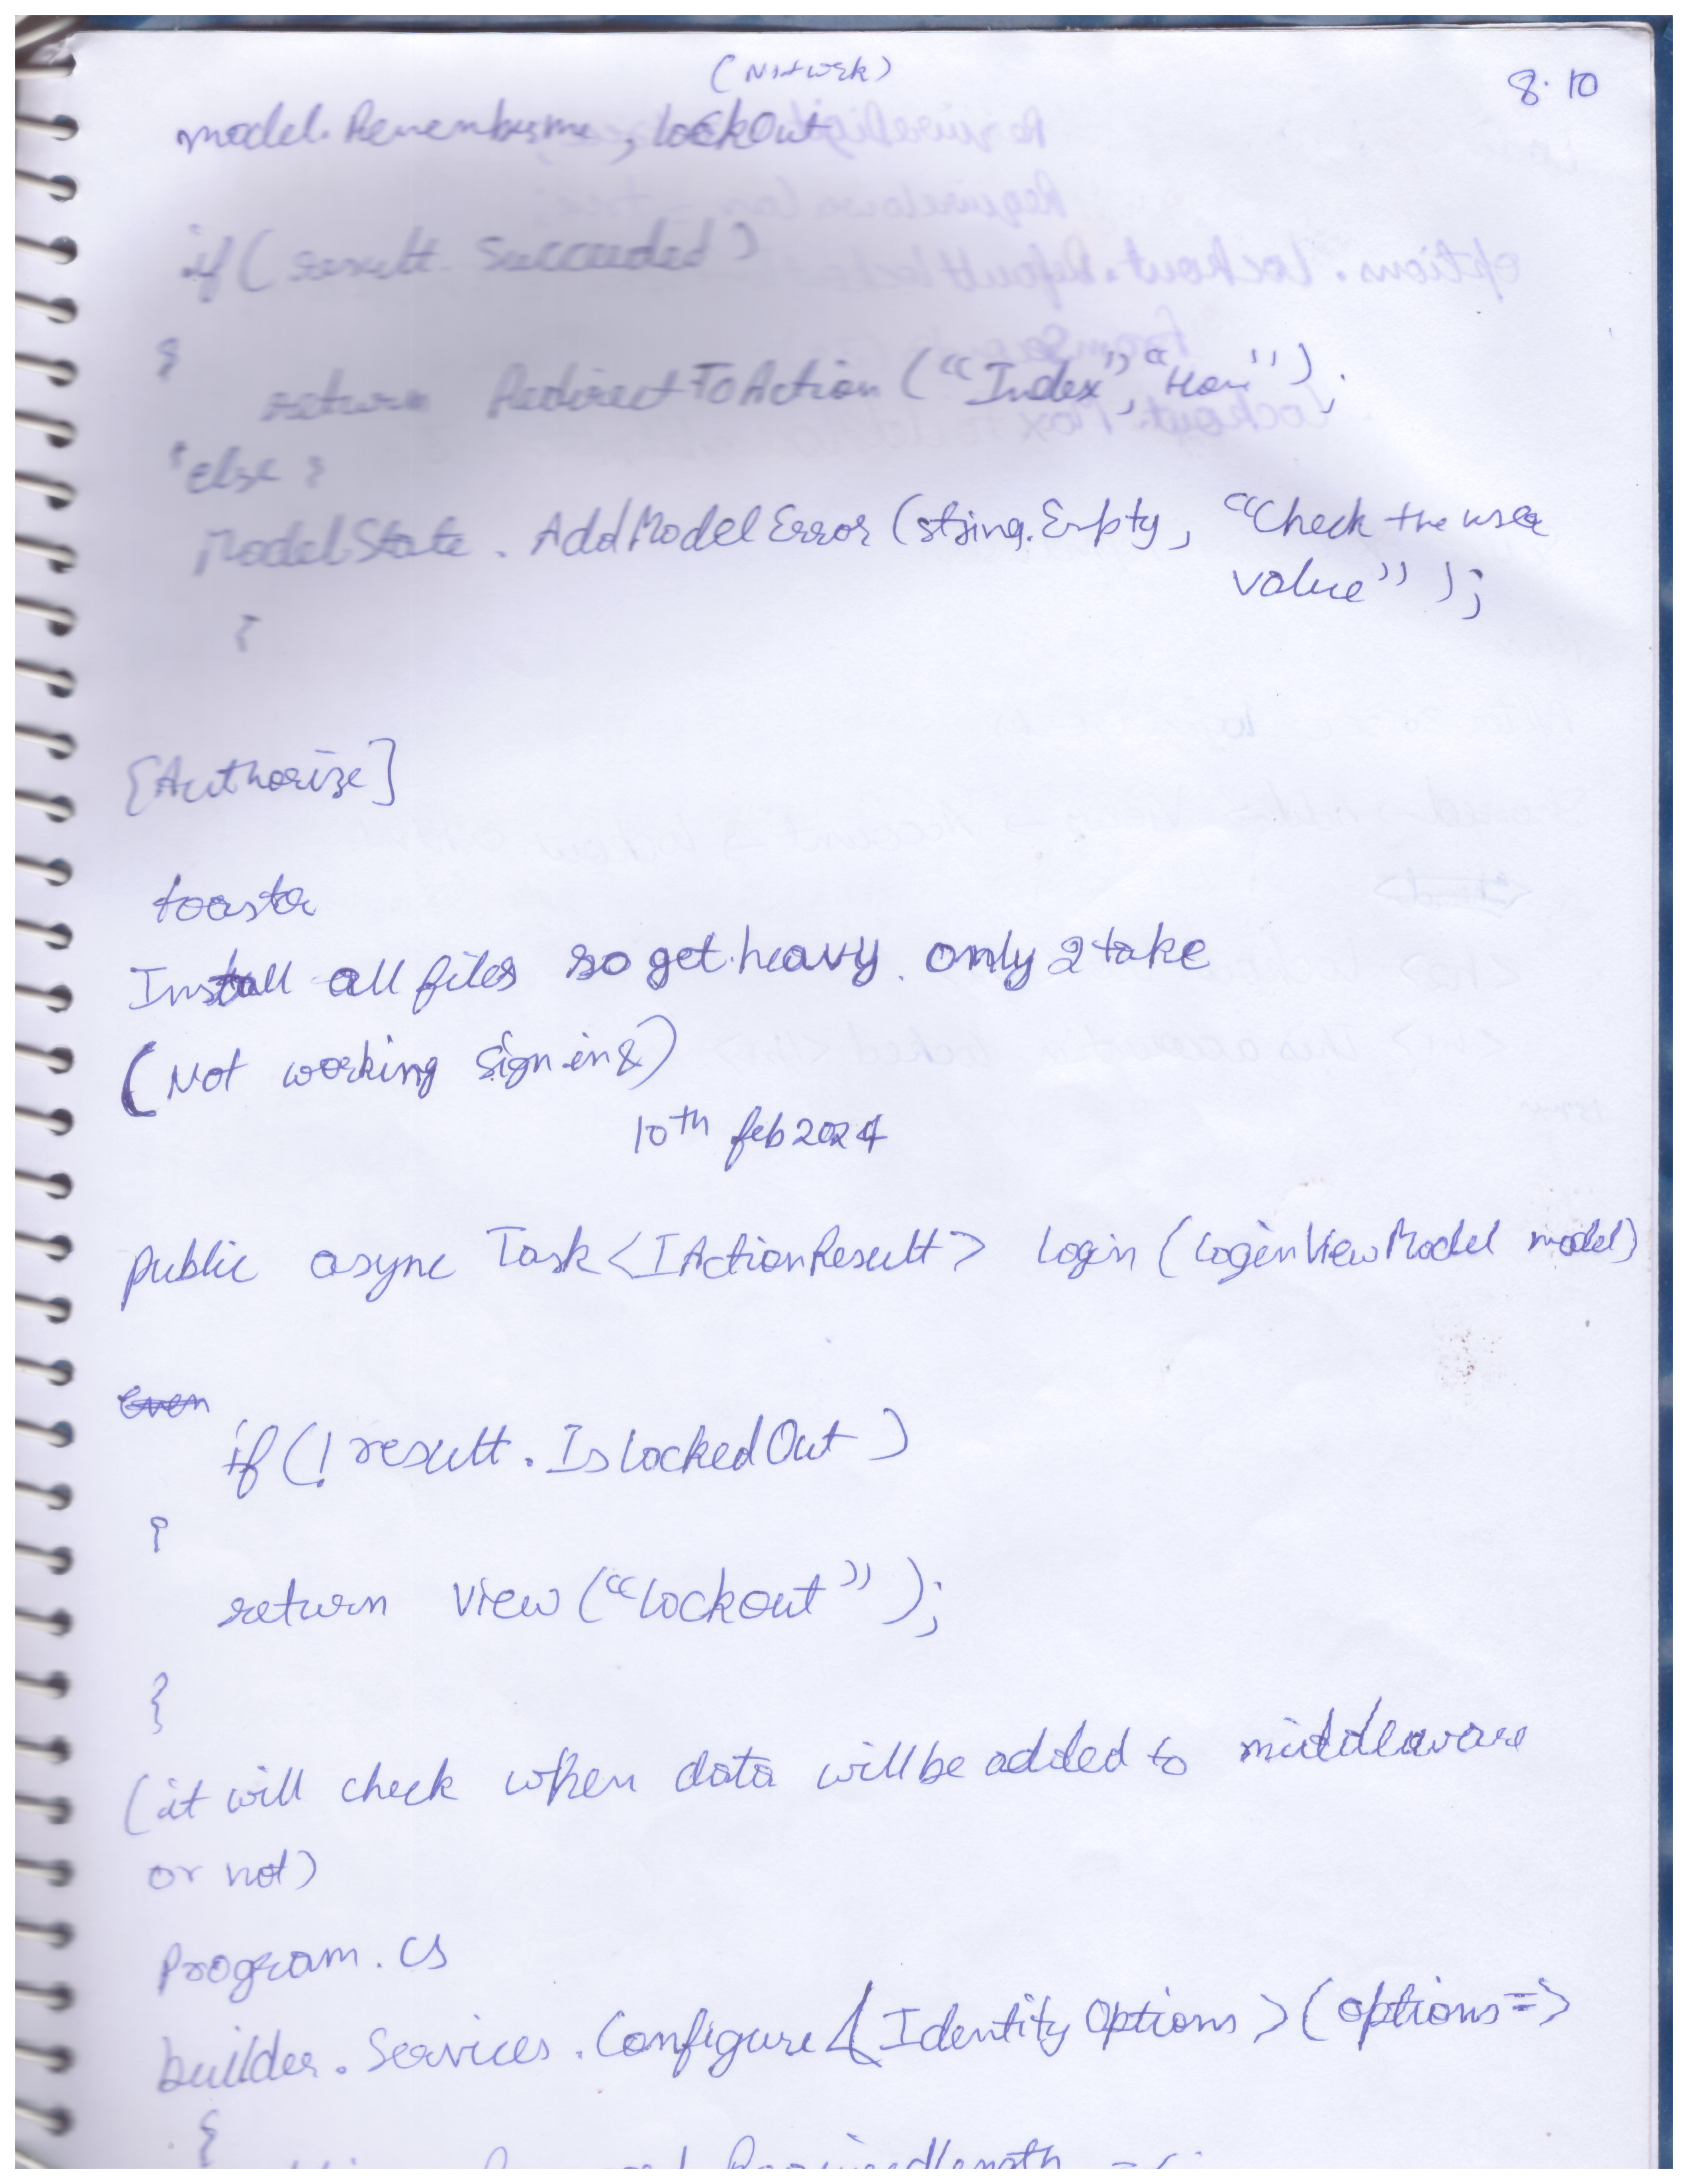 (Network)
8.10
model.Rememberme, lockOut
if ( result. Succeeded )
{
return RedirectToAction ("Index", "Hom");
}else {
ModelState . AddModelError (string.Empty, "Check the user
value" );
}
[Authorize]
toastr
Install all files so get heavy. only 2 take
(Not working sign in &)
10th feb 2024
public async Task<IActionResult> Login (LoginViewModel model)
Even
if (! result . IsLockedOut )
{
return View ("lockout" );
}
(it will check when data will be added to middleware
or not)
Program . cs
builder . Services . Configure < IdentityOptions > ( options =>
{
RequiredLength =